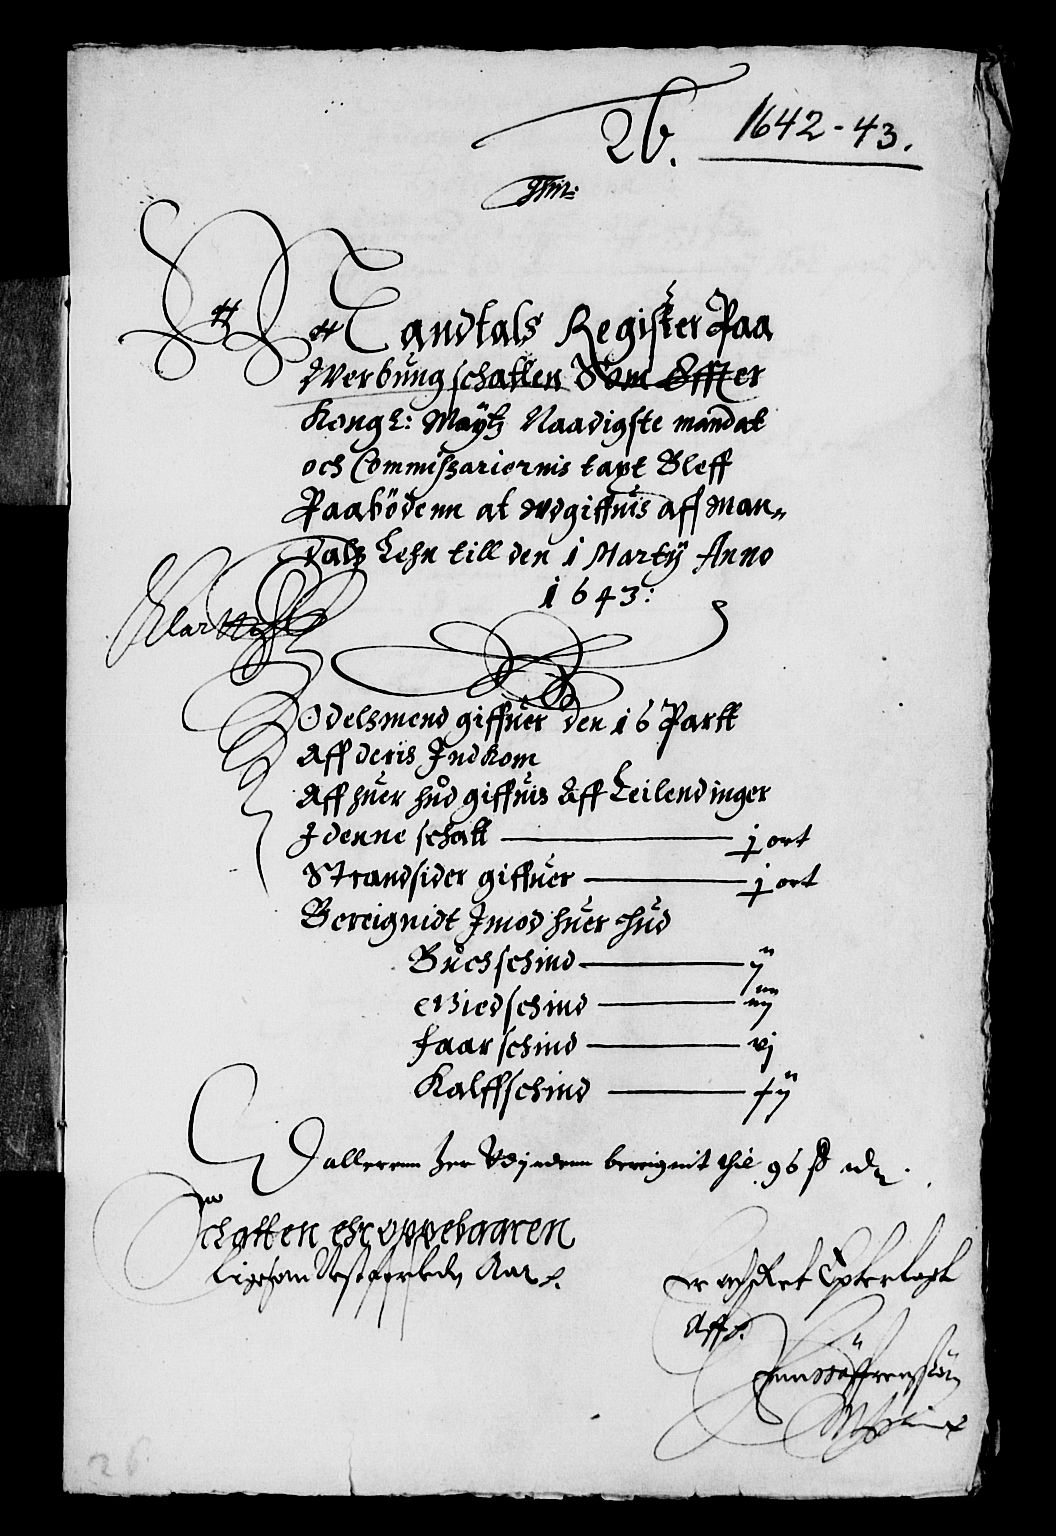 26. 1642-43.
Et Mandtals Register Paa
Werbung schatten Som Effter
Kongl: Maÿtz Naadigste mandat
och Commissariernis taxt Bleff
Paabödenn at wdgiffuis aff Man„
dals Lehn till den 1 Martÿ Anno
1643:
Odelsmend giffuer den 16 Partt
Aff deris Indkom
Aff huer hud giffuis Aff Leilendinger
I denne schatt j ort
Strandsider giffuer j ort
Bereignidt Imod huer hud
Buchschind ij
Giedschind iiij
Faarschind vj
Kalffschind xij
Dallerenn her Udj bereignit thil 96 ß
Schatten ehr oppebaaren
Ligesom Aar
Er Ret
Aff
26